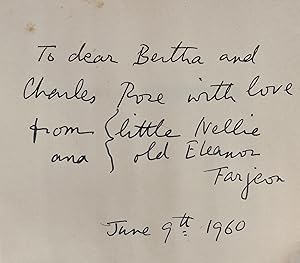 To dear Bertha and
Charles Rose with love
from { little Nellie
and { old Eleanor
Farjeon
June 9th 1960